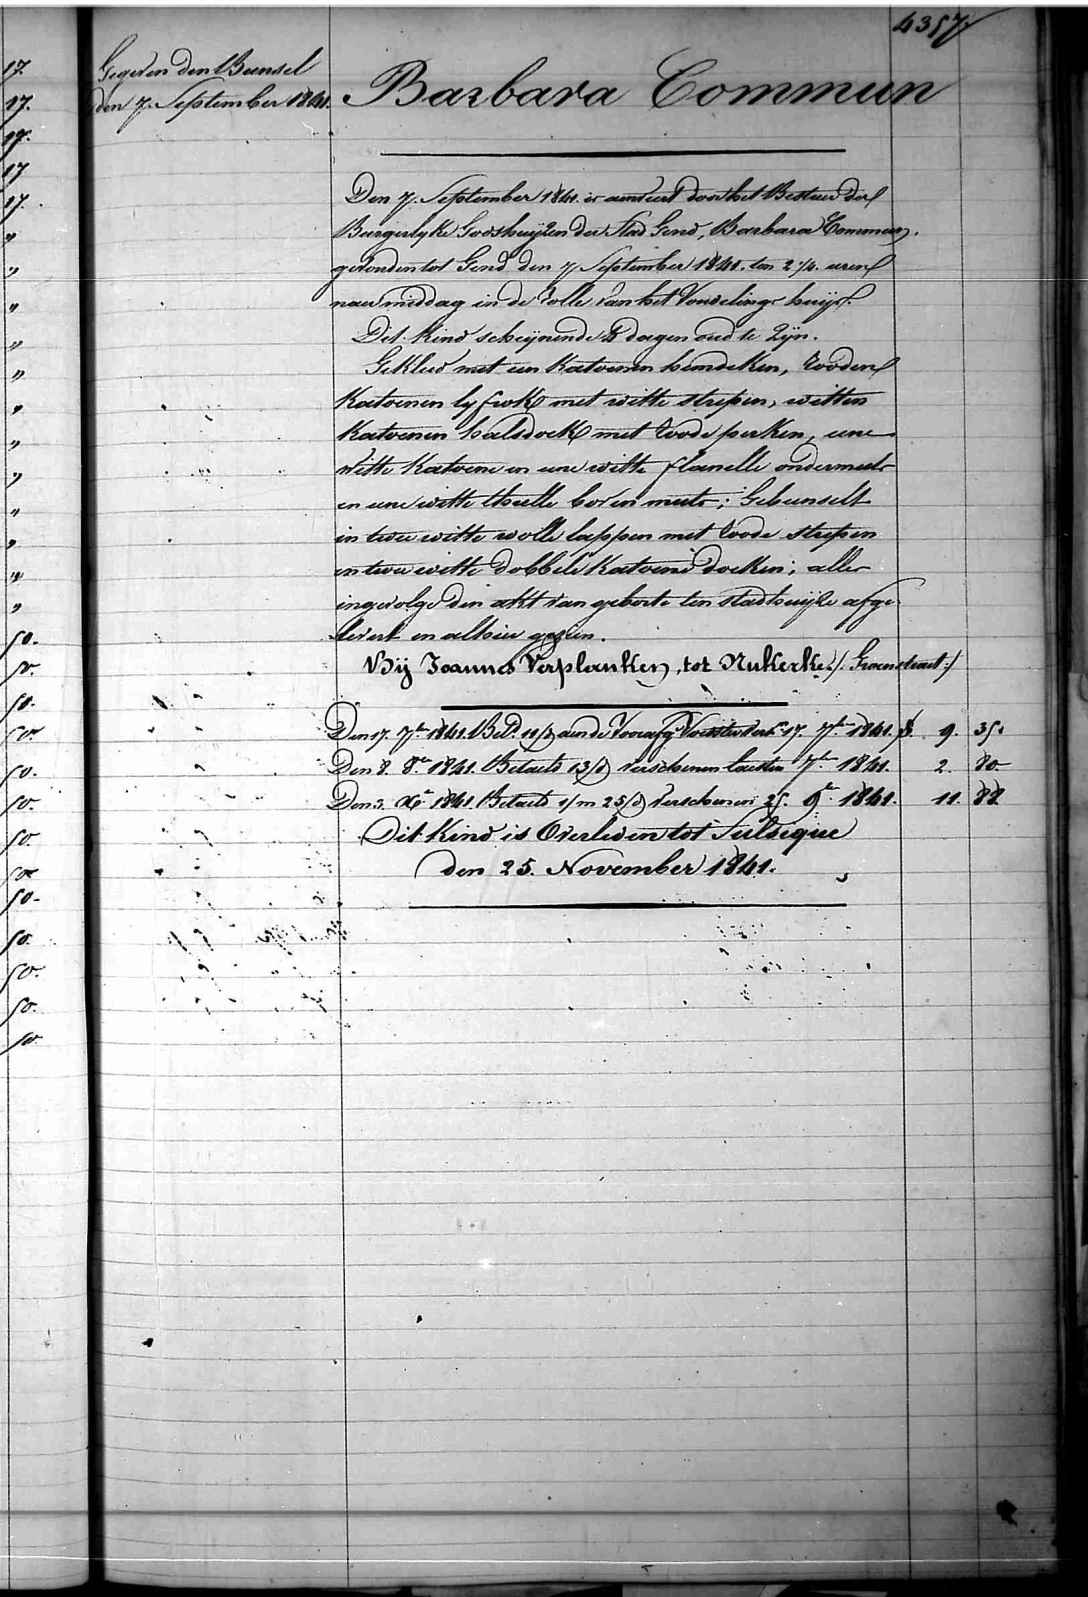 4357
17.
17.
17.
17
17.
"
"
"
"
"
"
"
"
"
"
"
"
50.
50.
50.
50.
50.
50.
50.
50.
50.
50.
50.
50.
50
Gegeven den Bunsel
den 7. September 1841.
Barbara Commun
Den 7. September 1841. is aenveerd door het Bestuer der
Burgerlyke Godshuyzen der Stad Gend, Barbara Commun,
gevonden tot Gend den 7 September 1841. ten 2 1/4. uren
naer middag in de Rolle van het Vondelings huys.
Dit Kind scheynende dagen oud te zyn.
Gekleed met een Katoenen hemdeken, rooden
Katoenen lyfrok met witte strepen, witten
Katoenen halsdoek met roode perken, eene
witte Katoene en eene witte flanelle ondermuts
en eene witte thulle boven muts; Gebunselt
in twee witte wolle lappen met roode strepen
en twee witte dobbele Katoene doeken; alles
ingevolge den akt van geboorte ten stadhuyze afge
levert en alhier gezien.
Bij Joannes Verplanken, tot Nukerke /. Groenstraet :/
Den 17. 7br 1841. Betd. 11/3 aen de Voorafg. Voedster 17. 7br 1841. 9. 35.
Den 8. 8r 1841. Betaelt 13/3 verschenen laesten 7br 1841. 2. 80
Den 3. Xr 1841. Betaelt 1/m 25/3 verschenen 25. 9r 1841. 11. 88
Dit Kind is Overleden tot Sulsique
den 25. November 1841.